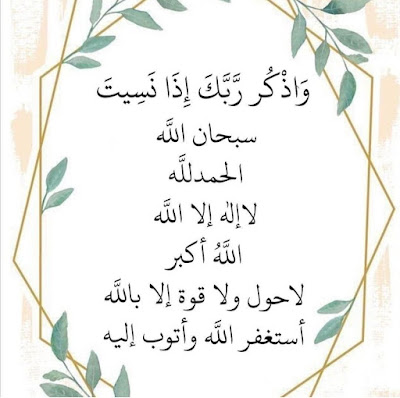 وَاذْكُر رَّبَّكَ إِذَا نَسِيتَ
سبحان اللَّه
الحمدللَّه
لاإلٰه إلا اللَّه
اللَّهُ أكبر
لاحول ولا قوة إلا باللَّه
أستغفر اللَّه وأتوب إليه